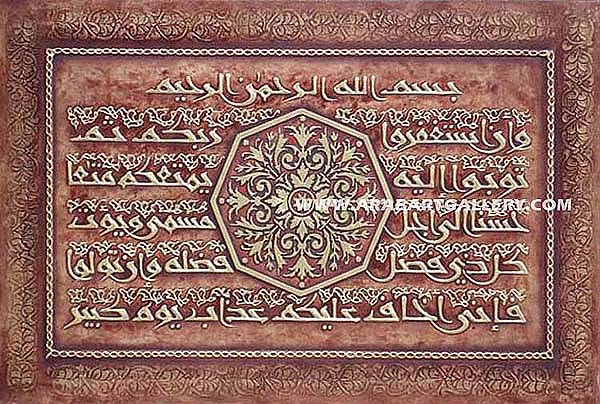 بسم الله الرحمن الرحيم
وان استغفروا ربكم ثم
توبوا اليه يمتعكم متعا
حسنا الى اجل مسمى ويوت
كل ذي فضل فضله وإن تولوا
فإنى أخاف عليكم عذاب يوم كبير
WWW.ARABARTGALLERY.COM